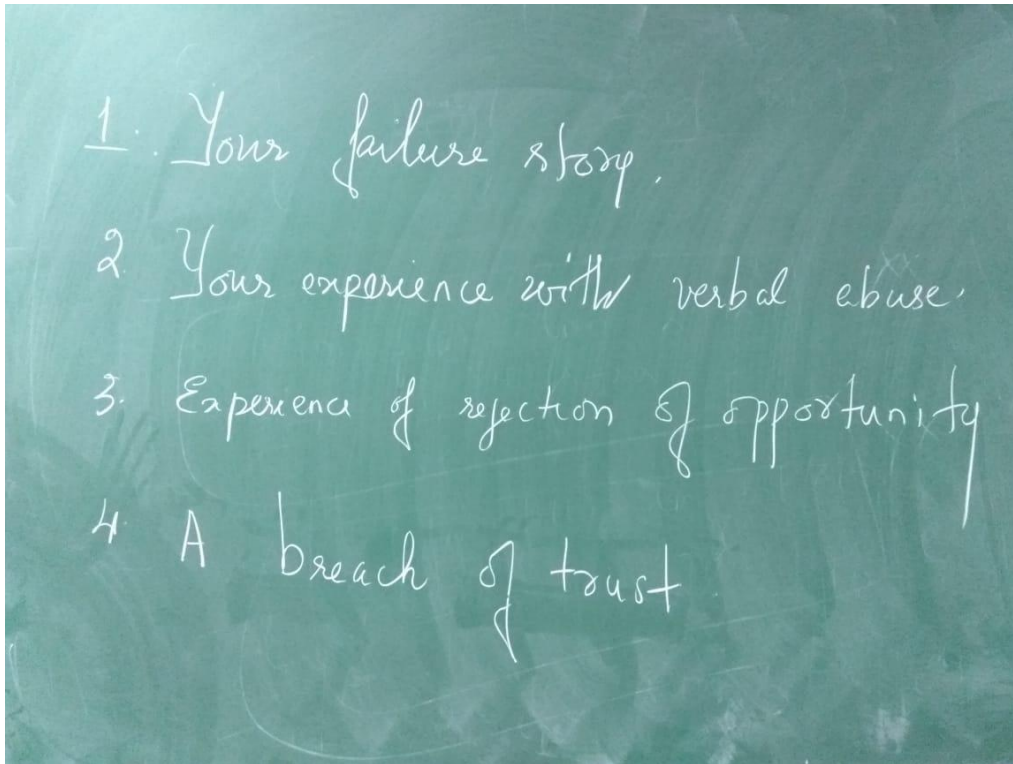 1. Your failure story.
2. Your experience with verbal abuse.
3. Experience of rejection of opportunity
4. A breach of trust